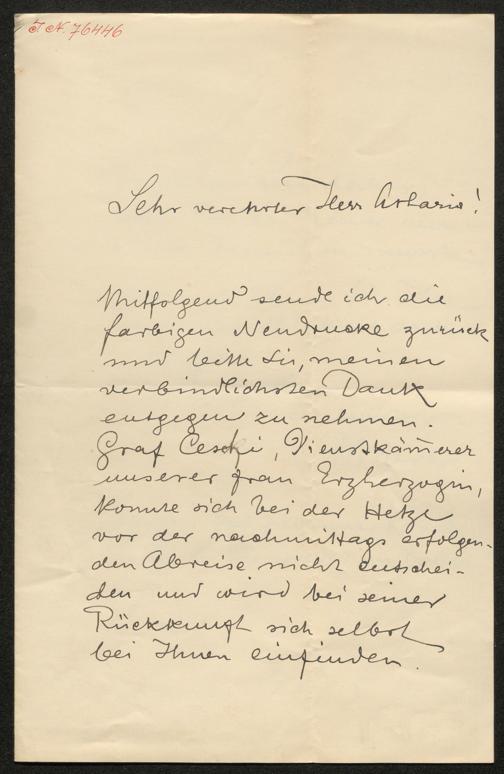 I. N. 76446
Sehr verehrter Herr Artaria!
Mitfolgend sende ich die
farbigen Neudrucke zurück
und bitte Sie, meinen
verbindlichsten Dank
entgegen zu nehmen.
Graf Ceschi, Dienstkämerer
unserer Frau Erzherzogin,
konnte sich bei der Hetze
vor der nachmittags erfolgen-
den Abreise nicht entschei-
den und wird bei seiner
Rückkunft sich selbst
bei Ihnen einfinden.